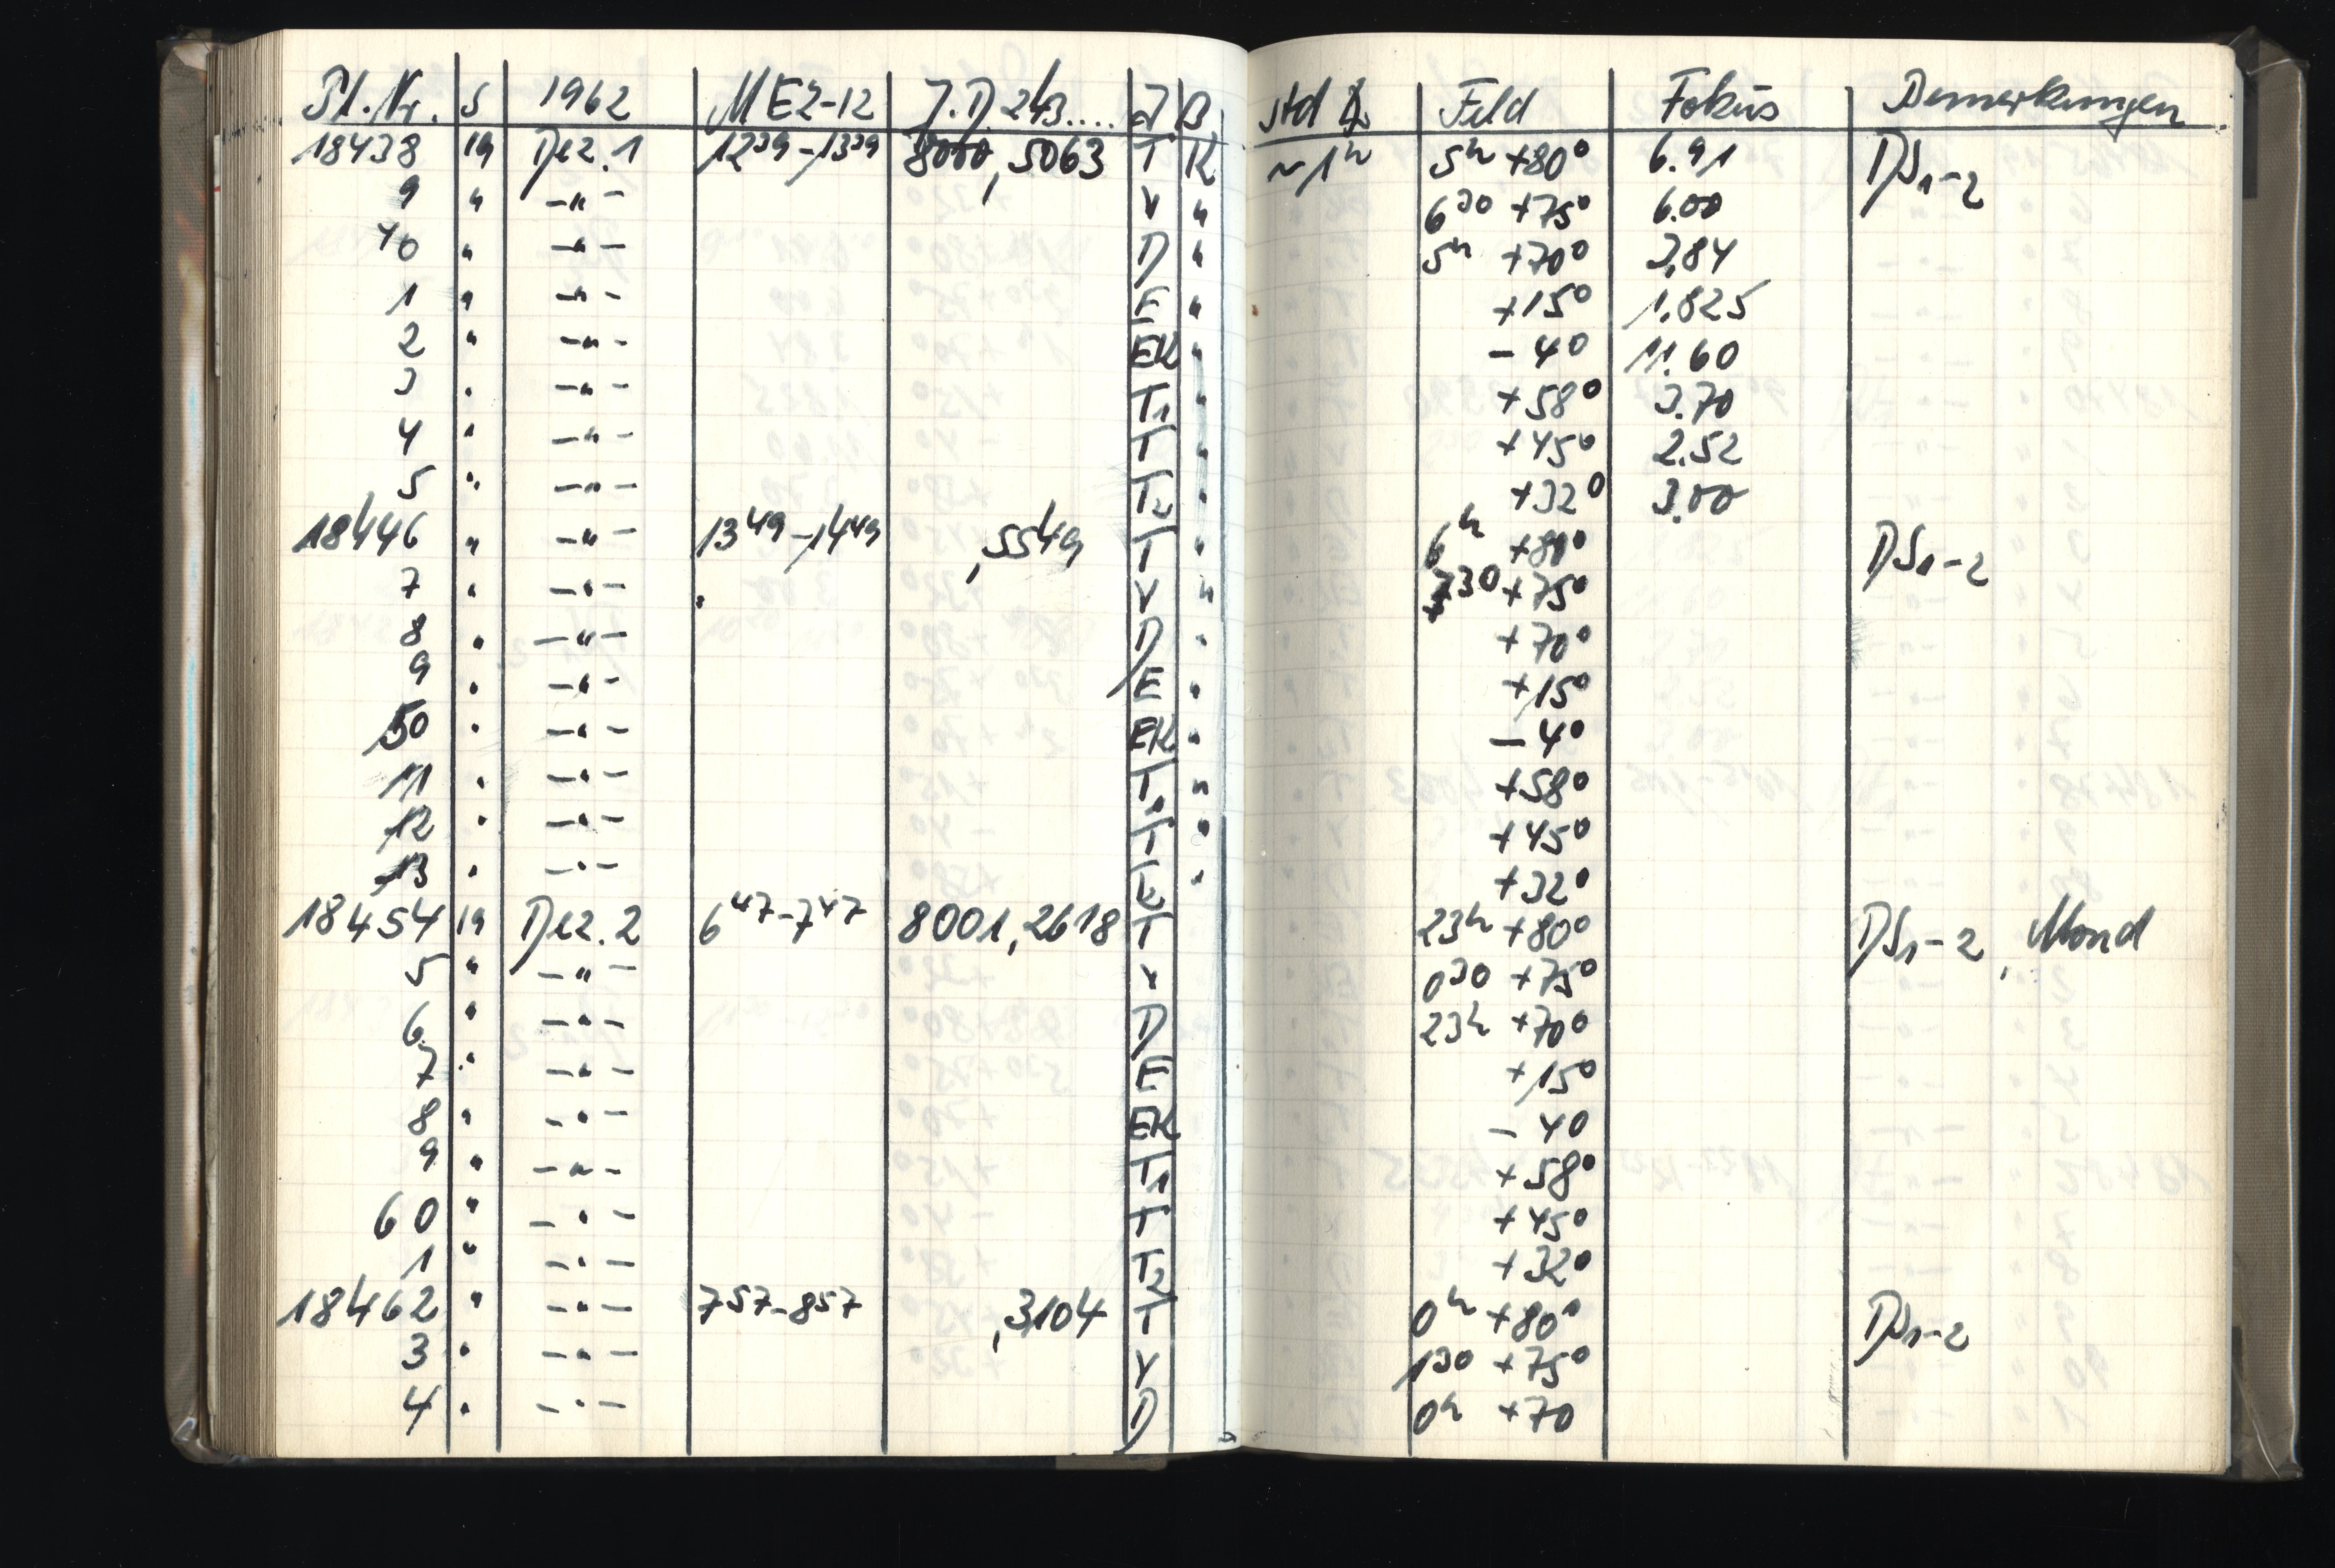 Pl. Nr. S 1962 MEZ-12 J.D. 243.... J B Std ∡ Feld Fokus Bemerkungen
18438 19 Dez. 1 12³⁹-13³⁹ 8000,5063 T K ~1ʰ 5ʰ +80° 6.91 DS₁-2
9 " -"- V " 6³⁰ +75° 6.00
40 " -"- D " 5ʰ +70° 3,84
1 " -"- E " +15° 1.825
2 " -"- EK " -4° 11.60
3 " -"- T₁ " +58° 3.70
4 " -"- T " +45° 2.52
5 " -"- T₂ " +32° 3.00
18446 " -"- 13⁴⁹-14⁴⁹ ,5549 T " 6ʰ +80° DS1-2
7 " -"- V " 7³⁰ +75°
8 " -"- D " +70°
9 " -"- E " +15°
50 " -"- EK " -4°
11 " -"- T₁ " +58°
12 " -"- T " +45°
13 " -"- T₂ " +32°
18454 19 Dez. 2 6⁴⁷-7⁴⁷ 8001,2618 T 23ʰ +80° DS1-2, Mond
5 " -"- V 0³⁰ +75°
6 " -"- D 23ʰ +70°
7 " -"- E +15°
8 " -"- EK -4°
9 " -"- T₁ +58°
60 " -"- T +45°
1 " -"- T₂ +32°
18462 " -"- 7⁵⁷-8⁵⁷ ,3104 T 0ʰ +80° DS1-2
3 " -"- V 1³⁰ +75°
4 " -"- D 0ʰ +70